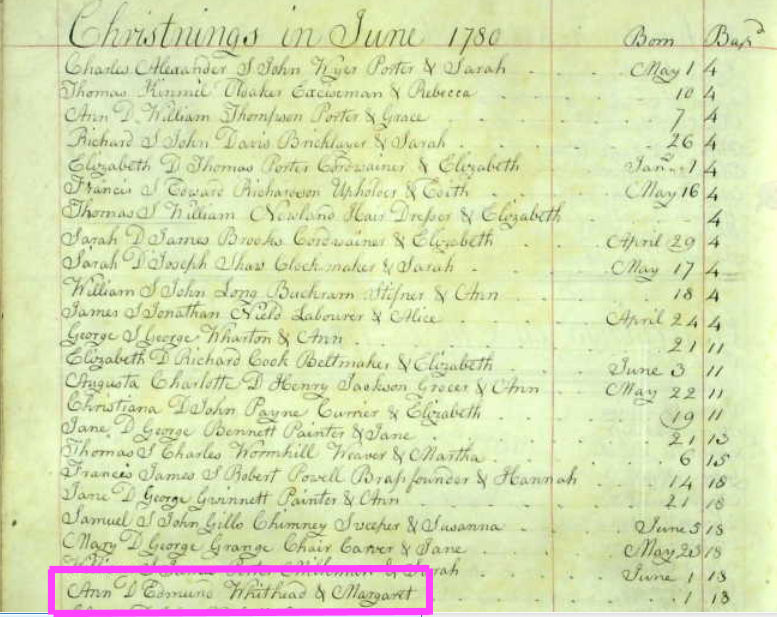 Christnings in June 1780 Born Bap^d
Charles Alexander S John Wyer Porter & Sarah May 1 4
Thomas Kimmil Roaker Exciseman & Rebecca 10 4
Ann D William Thompson Porter & Grace 7 4
Richard S John Davis Bricklayer & Sarah 26 4
Elizabeth D Thomas Porter Cordwainer & Elizabeth Jan^y 1 4
Francis S Edward Richardson Upholder & Edith May 16 4
Thomas S William Newland Hair Dresser & Elizabeth 4
Sarah D James Brooks Cordwainer & Elizabeth April 29 4
Sarah D Joseph Shaw Clockmaker & Sarah May 17 4
William S John Long Buckram Stifner & Ann 18 4
James S Jonathan Nield Labourer & Alice April 24 4
George S George Wharton & Ann 21 11
Elizabeth D Richard Cook Beltmaker & Elizabeth June 3 11
Augusta Charlotte D Henry Jackson Grocer & Ann May 22 11
Christiana D John Payne Currier & Elizabeth 19 11
Jane D George Bennett Painter & Jane 21 13
Thomas S Charles Wormhill Weaver & Martha 6 15
Francis James S Robert Powell Brassfounder & Hannah 14 18
Jane D George Gwinnett Painter & Ann 21 18
Samuel S John Gillo Chimney Sweeper & Susanna June 5 18
Mary D George Grange Chair Carver & Jane May 23 18
James Milkman & Sarah June 1 18
Ann D Edmund Whithead & Margaret 1 18